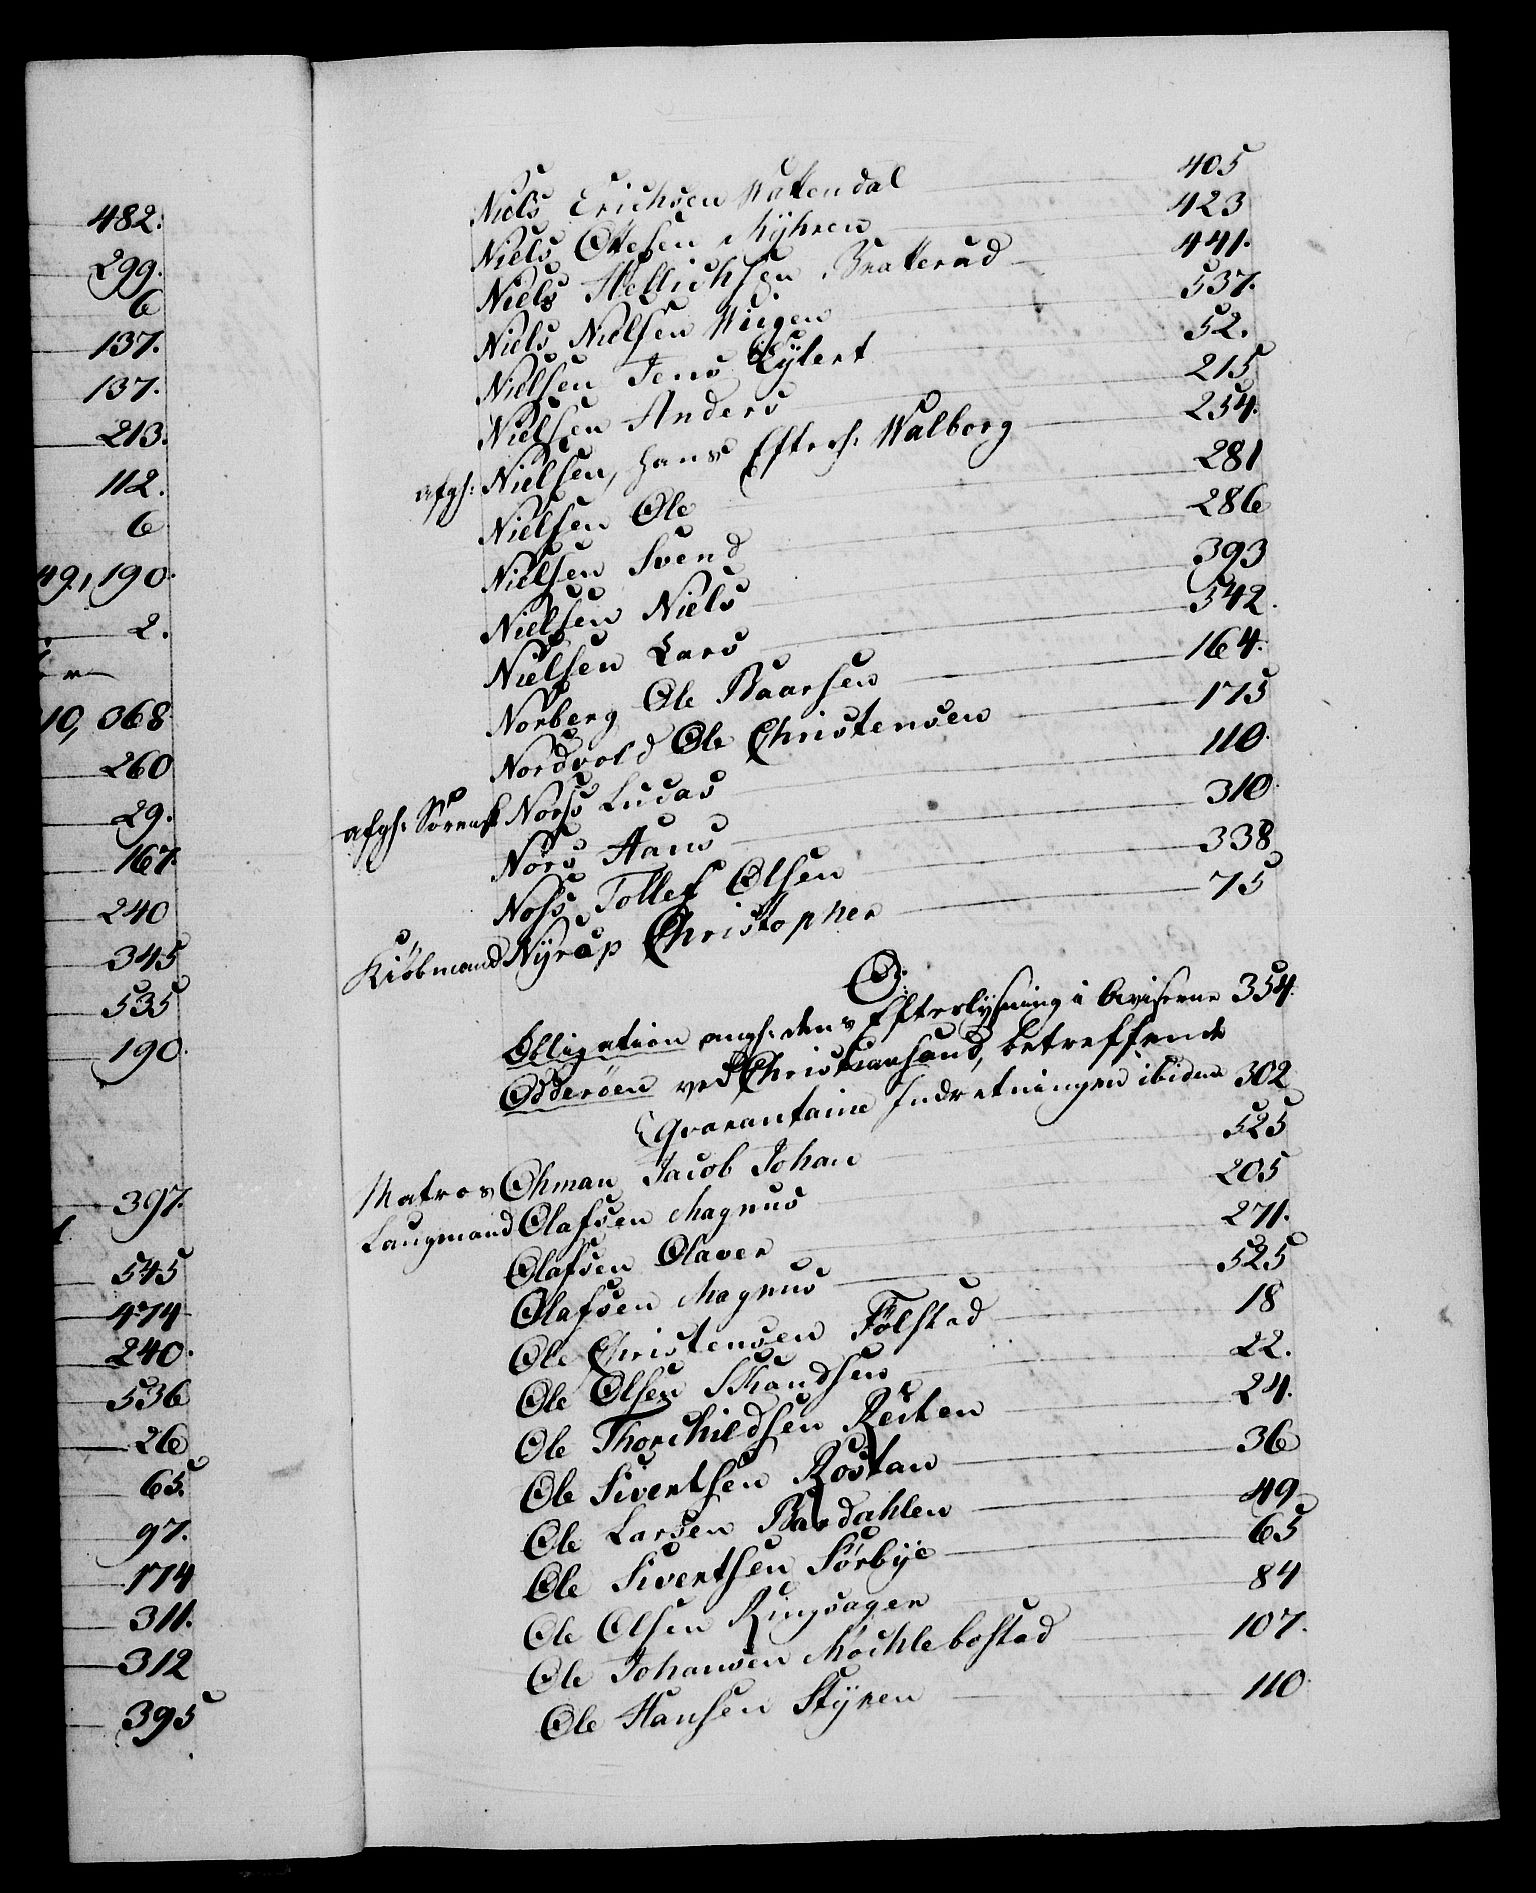 482.
299.
6
137.
137.
213.
112.
6
49, 190.
2.
10, 368
260
29.
167.
240
345
535
190.
397.
545
474
240.
536
26
65.
97.
174
311.
312
395
Niels Erichsen Wattendal 405
Niels Ottesen Myhren 423
Niels Hellichsen Bratterud 441.
Niels Nielsen Wiigen 537.
Nielsen Jens Eylert 52.
Nielsen Anders 215
afgh: Nielsen, Hans Efterl: Walborg 254.
Nielsen Ole 281
Nielsen Svend 286
Nielsen Niels 393
Nielsen Lars 542.
Norberg Ole Baarsen 164.
Nordvold Ole Christensen 175
afgh: Sorensk Norss Lucas 110.
Nørs Hans 310.
Noss Tollef Olsen 338
Kiøbmand Nyrup Christopher 75
O:
Obligation angl: dens Efterlysning i Aviserne 354.
Odderøen ved Christiansand, betreffende
Qvarantaine Indretningen ibidem 302
Matros Ohman Jacob Johan 525
Laugmand Olafsen Magnus 205
Olafsen Olaver 271.
Olafsen Magnus 525
Ole Christensen Følstad 18
Ole Olsen Skandsen 22.
Ole Thorchildsen Reiten 24.
Ole Sivertsen Rostan 36
Ole Larsen Bardahlen 49
Ole Sivertsen Sørbye 65
Ole Olsen Ringsager 84
Ole Johansen Møchlebostad 107.
Ole Hansen Styren 110